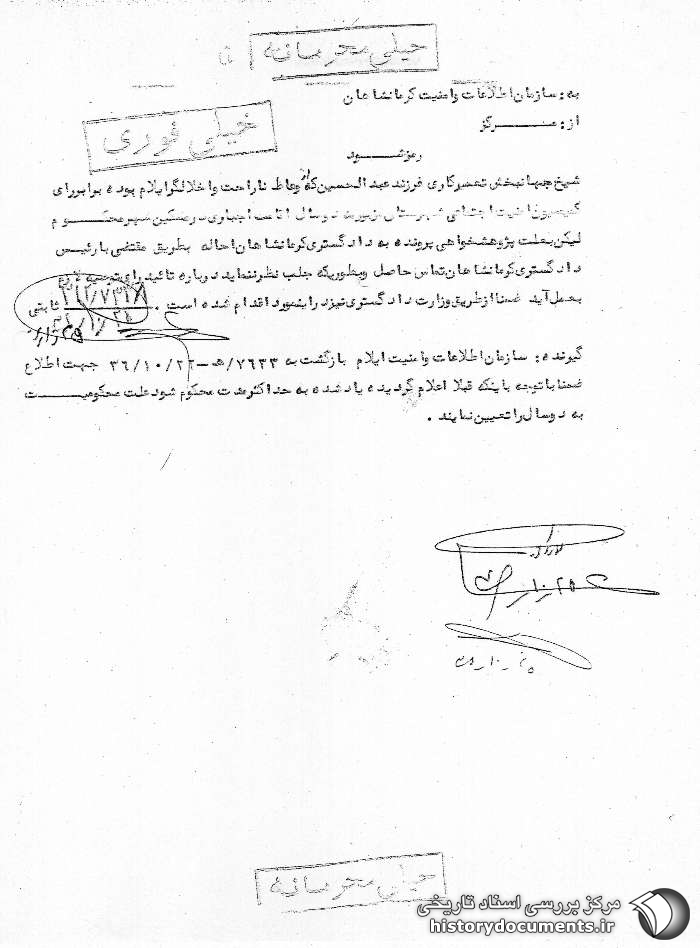 خیلی محرمانه
به: سازمان اطلاعات و امنیت کرمانشاهان
از: مرکز
خیلی فوری
رمز شود
شیخ جهانبخش تعمیرکاری فرزند عبدالحسین که از وعاظ ناراحت و اخلالگر ایلام بوده برابر رای
کمیسیون امنیت اجتماعی شهرستان مزبور به دو سال اقامت اجباری در محکوم
لیکن بعلت پژوهشخواهی پرونده به دادگستری کرمانشاهان احاله بطریق مقتضی با رئیس
دادگستری کرمانشاهان تماس حاصل و بطوریکه جلب نظر ننماید درباره تائید رای توصیه لازم
بعمل آید ضمنا از طریق وزارت دادگستری نیز در اینمورد اقدام شده است .
گیرنده : سازمان اطلاعات و امنیت ایلام بازگشت به ۷۶۳۳/هـ - ۳۶/۱۰/۲۲ جهت اطلاع
ضمنا با توجه باینکه قبلا اعلام گردیده یاد شده به حداکثر مدت محکوم شود علت محکومیت
به دو سال را تعیین نمایند .
خیلی محرمانه
مرکز بررسی اسناد تاریخی
historydocuments.ir